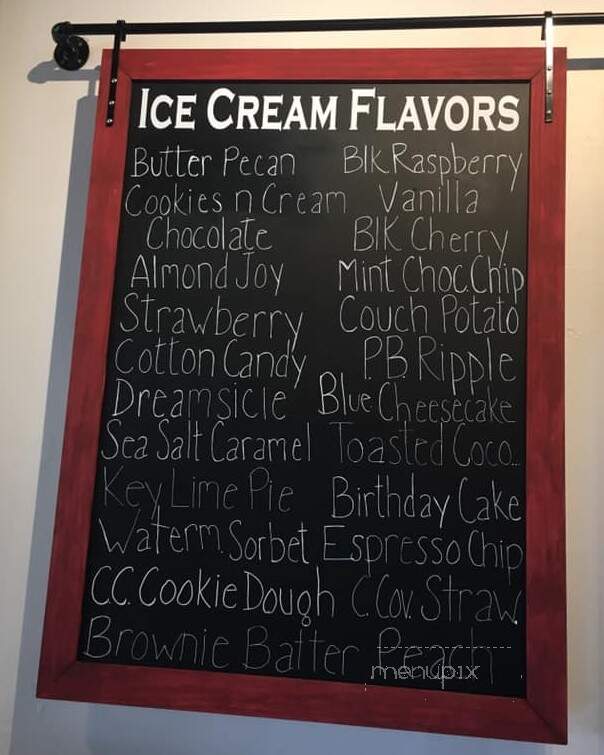 ICE CREAM FLAVORS
Butter Pecan Blk Raspberry
Cookies n Cream Vanilla
Chocolate Blk Cherry
Almond Joy Mint Choc.Chip
Strawberry Couch Potato
Cotton Candy PB Ripple
Dreamsicle Blue Cheesecake
Sea Salt Caramel Toasted Coco...
Key Lime Pie Birthday Cake
Waterm. Sorbet Espresso Chip
C.C. Cookie Dough C.Cov. Straw.
Brownie Batter Peach
menupix